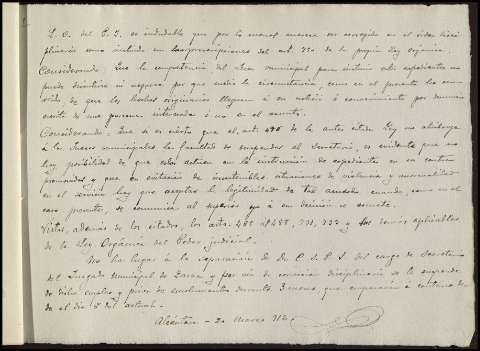 L. O. del P. J. es indudable que por lo menos merece ser corregido en el orden disci-
plinario como incluido en las prescripciones del art. 734 de la propia Ley Orgánica.
Considerando: Que la competencia del Juez municipal para instruir este expediente no
puede discutirse ni negarse por que medie la circunstancia, como en el presente ha ocu-
rrido, de que los hechos originarios lleguen á su noticia ó conocimiento por denuncia
escrita de una persona interesada ó no en el asunto.
Considerando: Que si es cierto que el art. 495 de la antes citada Ley no atribuye
á los Jueces municipales la facultad de suspender al Secretario, es evidente que no
hay posibilidad de que este actúe en la instrucción de expediente en su contra
promovido y que en evitación de insostenibles situaciones de violencia y anormalidad
en el servicio hay que aceptar la legitimidad de tal acuerdo cuando, como en el
caso presente, se comunica al superior y á su decisión se somete.
Vistos, además de los citados, los arts. 481 al 485, 731, 732 y los demás aplicables
de la Ley Orgánica del Poder judicial.
No ha lugar á la separación de D. C. S. P. S. del cargo de Secretario
del Juzgado Municipal de Zarza y por vía de corrección disciplinaria se le suspende
de dicho empleo y priva de emolumentos durante 3 meses que empezarán á contarse des-
de el día 5 del actual.
Alcántara - 20 Marzo 912.